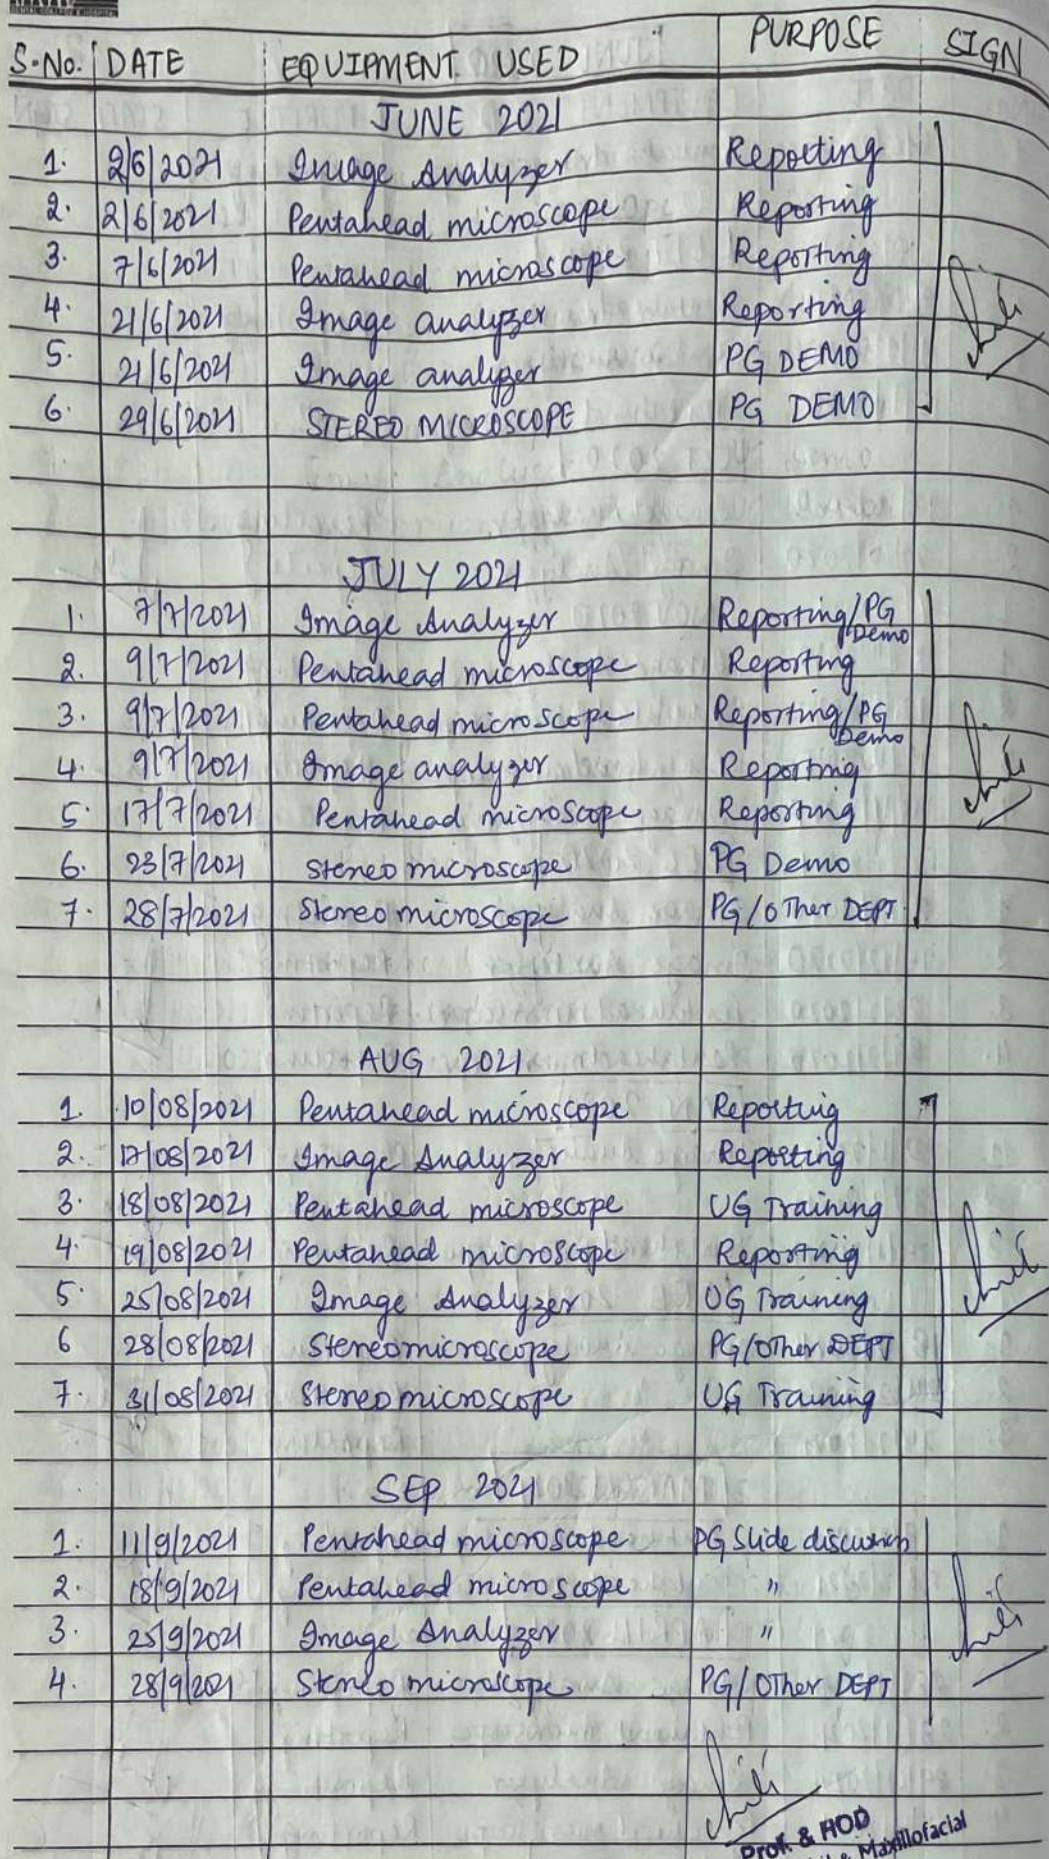 DENTAL COLLEGE & HOSPITAL
S.No. DATE EQUIPMENT USED PURPOSE SIGN
JUNE 2021
1. 2/6/2021 Image Analyzer Reporting
2. 2/6/2021 Pentahead microscope Reporting
3. 7/6/2021 Pentahead microscope Reporting
4. 21/6/2021 Image analyzer Reporting
5. 21/6/2021 Image analyzer PG DEMO
6. 29/6/2021 STEREO MICROSCOPE PG DEMO
JULY 2021
1. 7/7/2021 Image Analyzer Reporting/PG
Demo
2. 9/7/2021 Pentahead microscope Reporting
3. 9/7/2021 Pentahead microscope Reporting/PG
Demo
4. 9/7/2021 Image analyzer Reporting
5. 17/7/2021 Pentahead microscope Reporting
6. 23/7/2021 Stereo microscope PG Demo
7. 28/7/2021 Stereo microscope PG/OTher DEPT.
AUG 2021
1. 10/08/2021 Pentahead microscope Reporting
2. 17/08/2021 Image Analyzer Reporting
3. 18/08/2021 Pentahead microscope UG Training
4. 19/08/2021 Pentahead microscope Reporting
5. 25/08/2021 Image Analyzer UG Training
6 28/08/2021 Stereomicroscope PG/Other DEPT
7. 31/08/2021 Stereomicroscope UG Training
SEP 2021
1. 11/9/2021 Pentahead microscope PG Slide discussion
2. 18/9/2021 Pentahead microscope "
3. 25/9/2021 Image Analyzer "
4. 28/9/2021 Stereo microscope PG/OTher DEPT
Prof. & HOD
& Maxillofacial